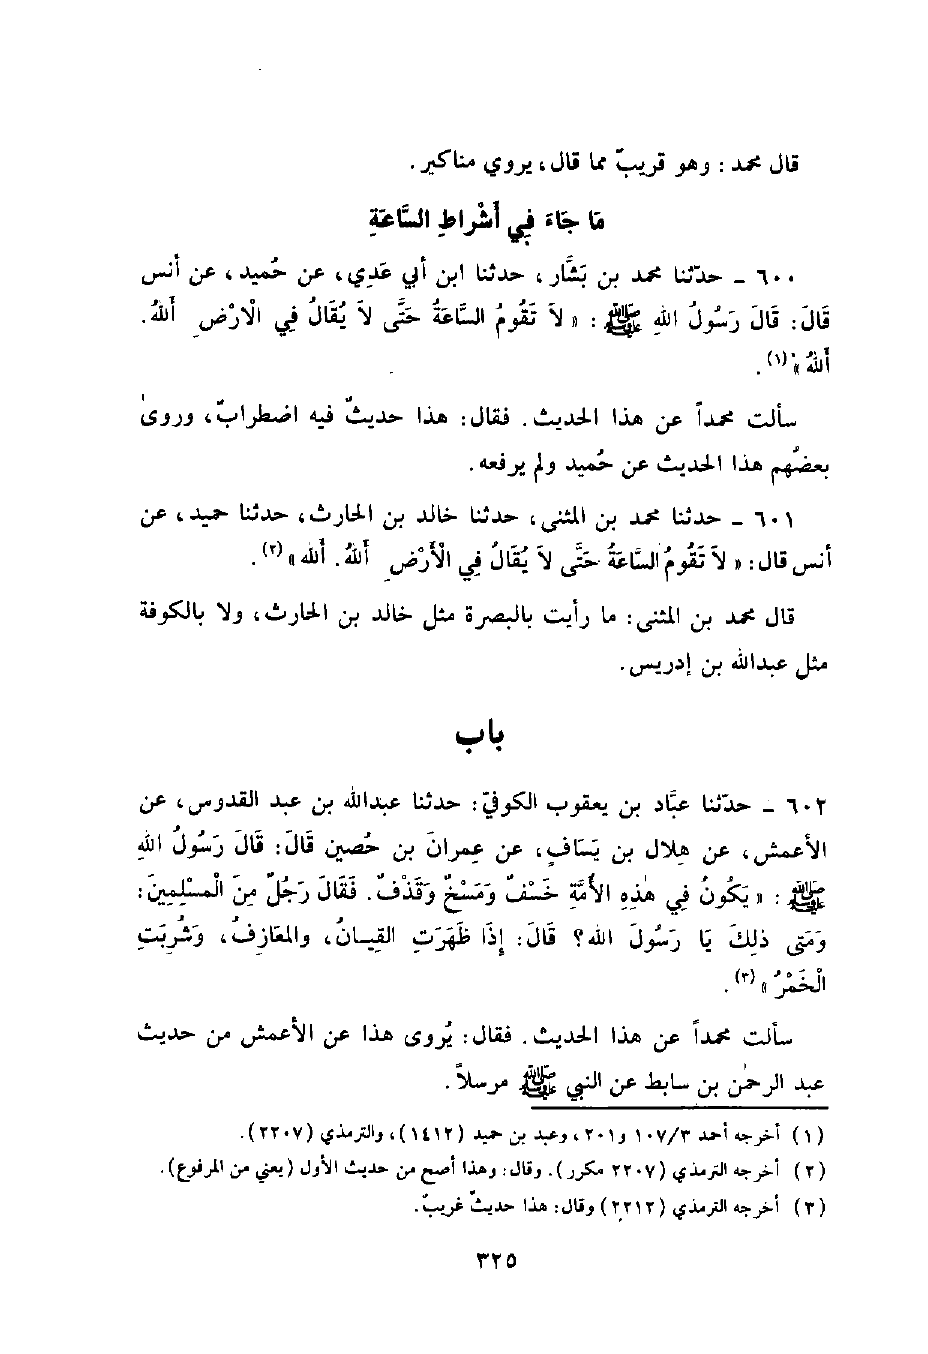 قال محمد : وهو قريبٌ مما قال، يروي مناكير .
مَا جَاءَ فِي أَشْرَاطِ السَّاعَةِ
٦٠٠ ـ حدّثنا محمد بن بَشَّار ، حدثنا ابن أبي عَدِي، عن حُميد، عن أنس
قَالَ: قَالَ رَسُولُ اللهِ ﷺ : « لاَ تَقُومُ السَّاعَةُ حَتَّى لاَ يُقَالُ فِي الْارْضِ أَللهُ.
أَللهُ »(١) .
سألت محمداً عن هذا الحديث . فقال: هذا حديثٌ فيه اضطرابٌ، وروىٰ
بعضُهم هذا الحديث عن حُميد ولم يرفعه .
٦٠١ ـ حدثنا محمد بن المثنى، حدثنا خالد بن الحارث، حدثنا حميد، عن
أنس قال: « لاَ تَقُومُ السَّاعَةُ حَتَّى لاَ يُقَالُ فِي الْأَرْضِ أَللهُ. أَلله »(٢).
قال محمد بن المثنى: ما رأيت بالبصرة مثل خالد بن الحارث، ولا بالكوفة
مثل عبدالله بن إدريس.
باب
٦٠٢ ـ حدّثنا عبَّاد بن يعقوب الكوفيّ: حدثنا عبدالله بن عبد القدوس، عن
الأعمش، عن هِلال بن يَسَافٍ، عن عِمرانَ بن حُصين قَالَ: قَالَ رَسُولُ اللهِ
ﷺ : « يَكُونُ فِي هٰذِهِ الأمَّةِ خَسْفٌ وَمَسْخٌ وَقَذْفٌ. فَقَالَ رَجُلٌ مِنَ الْمسْلِمِينَ:
وَمَتَى ذلِكَ يَا رَسُولَ الله؟ قَالَ: إِذَا ظَهَرَتِ القِيـانُ، والمَعَازِفُ، وَشُرِبَتِ
الْخَمْرُ »(٣) .
سألت محمداً عن هذا الحديث . فقال: يُروى هذا عن الأعمش من حديث
عبد الرحمٰن بن سابط عن النبي ﷺ مرسلاً .
(١) أخرجه أحمد ١٠٧/٣ و٢٠١، وعبد بن حميد (١٤١٢)، والترمذي (٢٢٠٧).
(٢) أخرجه الترمذي (٢٢٠٧ مكرر). وقال: وهذا أصح من حديث الأول (يعني من المرفوع).
(٣) أخرجه الترمذي (٢٢١٢) وقال: هذا حديثٌ غريبٌ.
٣٢٥